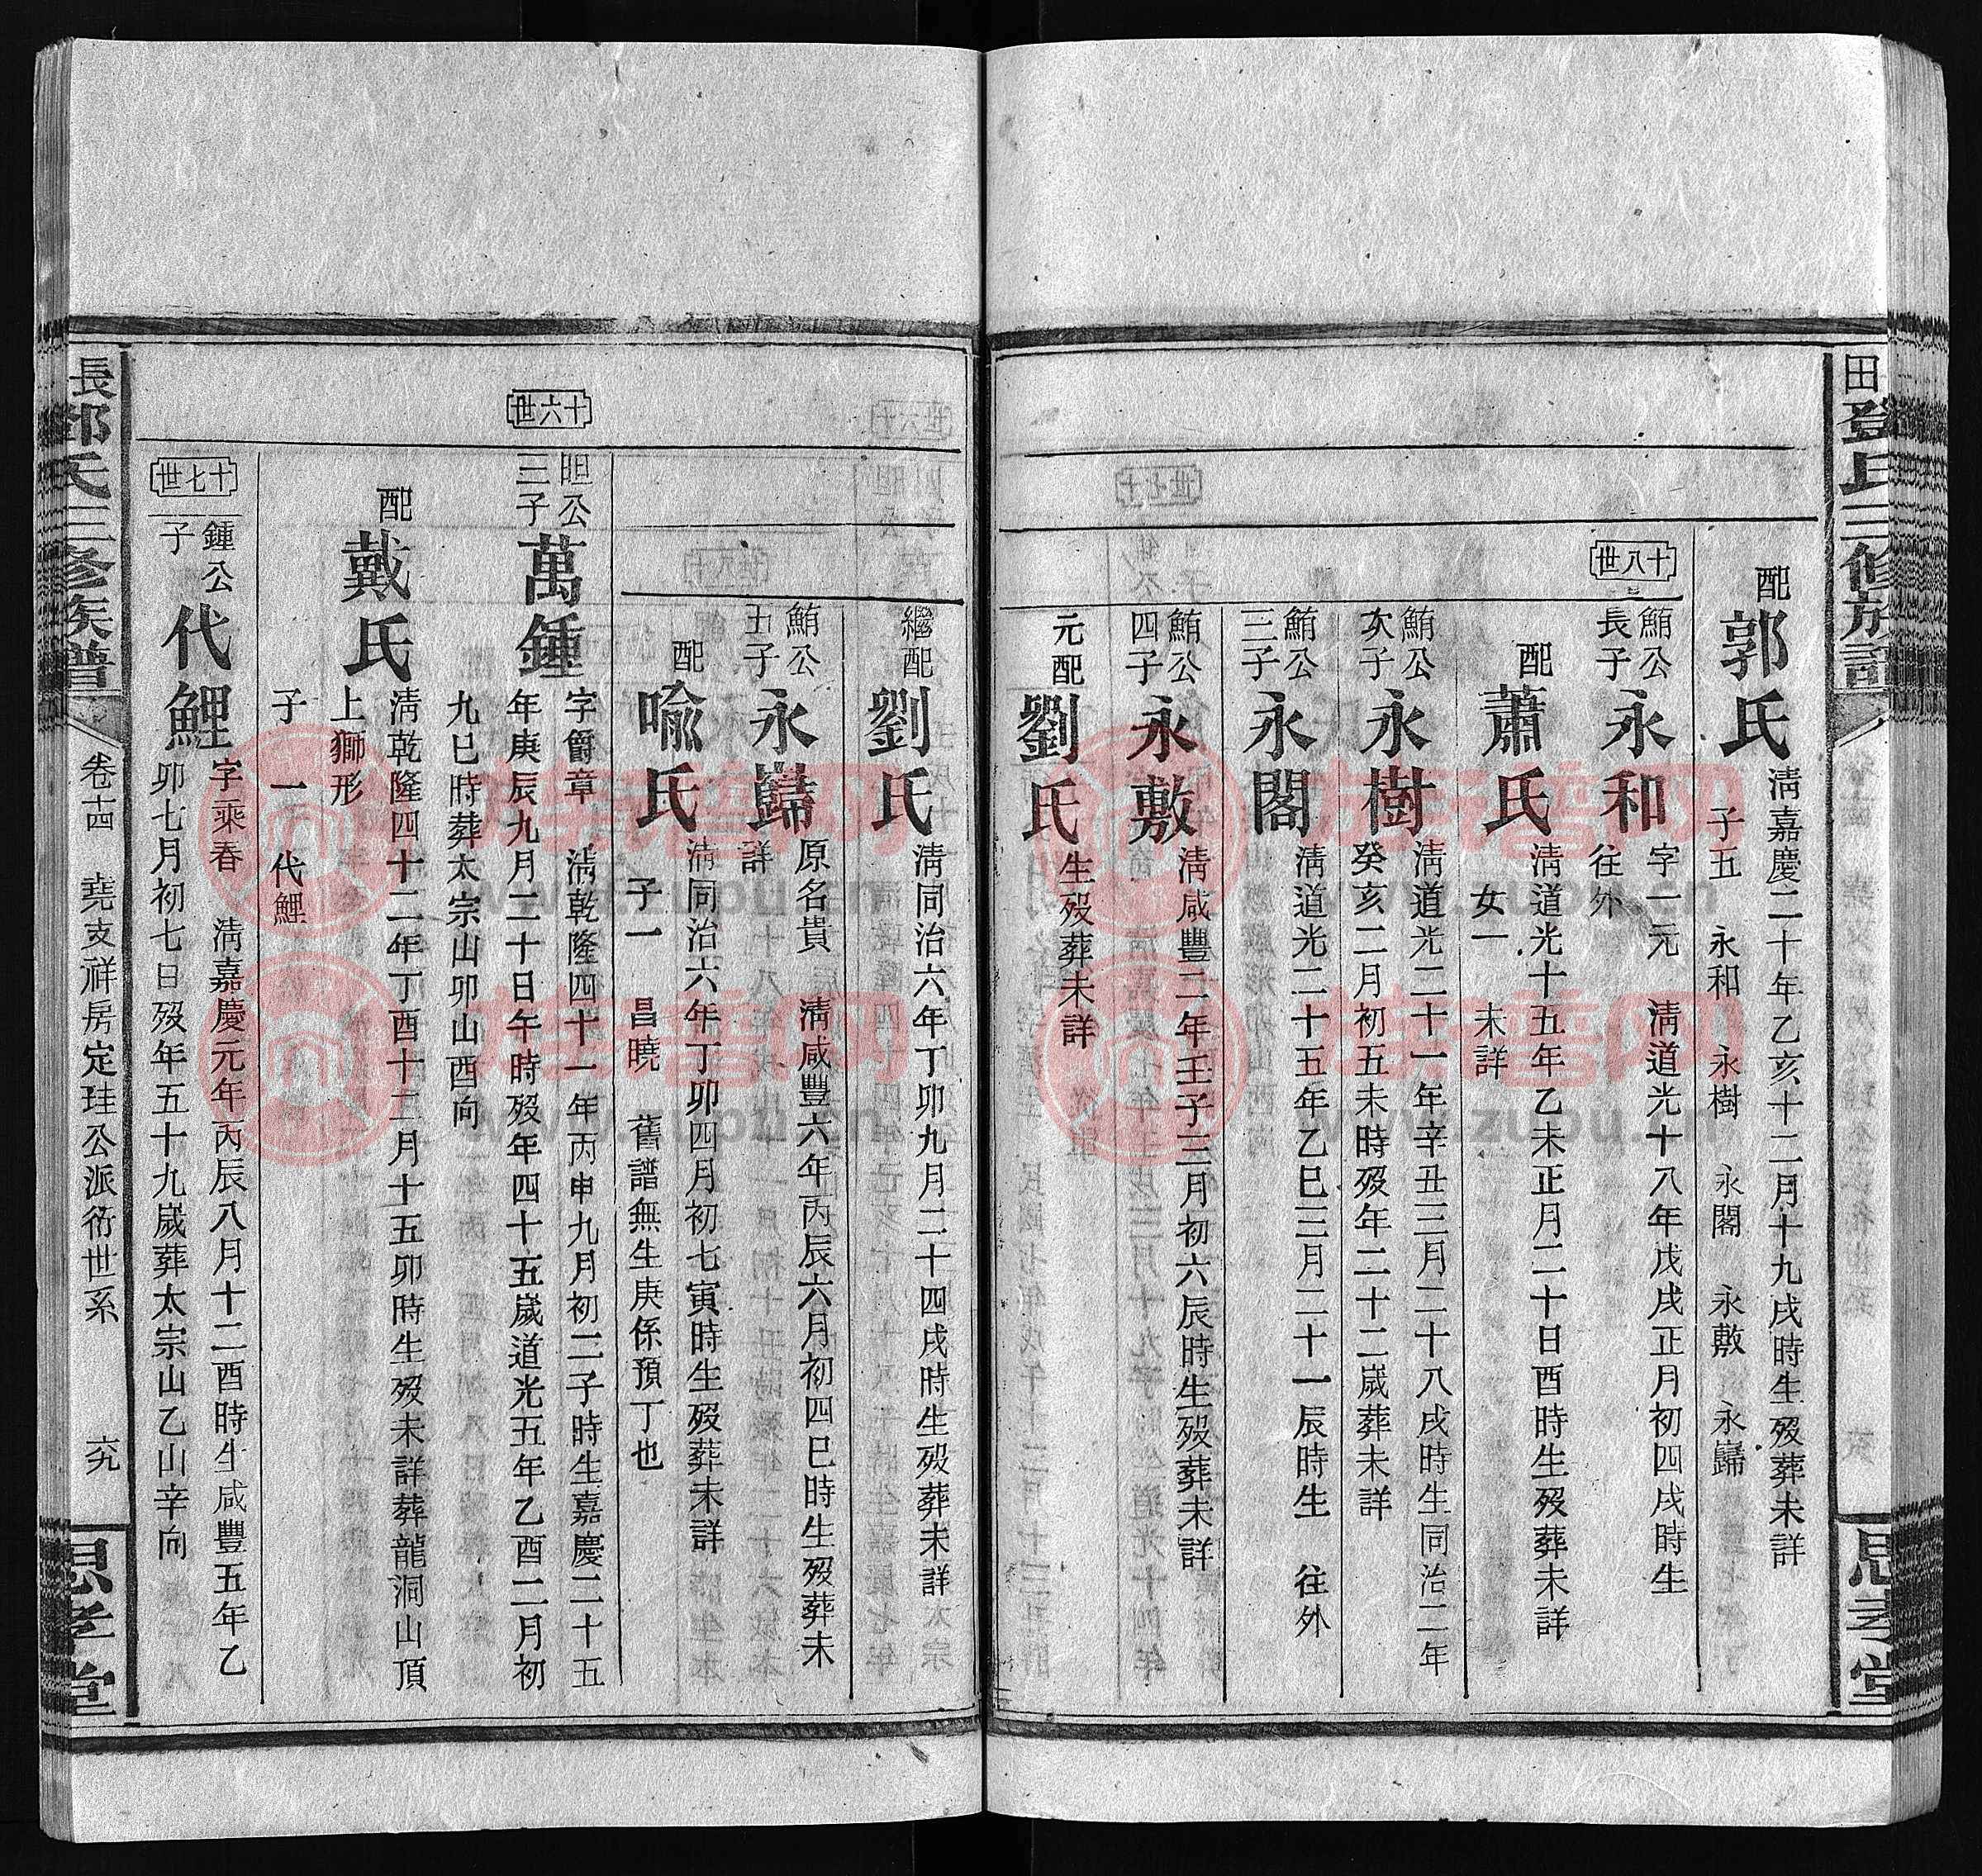 田鄧氏三修族譜
思孝堂
配郭氏
清嘉慶二十年乙亥十二月十九戌時生歿葬未詳
子五 永和 永樹 永閣 永敷 永巋
十八世
鮪公長子永和
字一元 清道光十八年戊戌正月初四戌時生
往外
配蕭氏
清道光十五年乙未正月二十日酉時生歿葬未詳
女一 未詳
鮪公次子永樹
清道光二十一年辛丑三月二十八戌時生同治二年
癸亥二月初五未時歿年二十二歲葬未詳
鮪公三子永閣
清道光二十五年乙巳三月二十一辰時生 往外
鮪公四子永敷
清咸豐二年壬子三月初六辰時生歿葬未詳
元配劉氏
生歿葬未詳
繼配劉氏
清同治六年丁卯九月二十四戌時生歿葬未詳
鮪公五子永巋
原名貴 清咸豐六年丙辰六月初四巳時生歿葬未
詳
配喻氏
清同治六年丁卯四月初七寅時生歿葬未詳
子一 昌曉 舊譜無生庚係預丁也
十六世
三子萬鍾
字爵章 清乾隆四十一年丙申九月初二子時生嘉慶二十五
年庚辰九月二十日午時歿年四十五歲道光五年乙酉二月初
九巳時葬太宗山卯山酉向
配戴氏
清乾隆四十二年丁酉十二月十五卯時生歿未詳葬龍洞山頂
上獅形
子一 代鯉
十七世
鍾公子代鯉
字乘春 清嘉慶元年丙辰八月十二酉時生咸豐五年乙
卯七月初七日歿年五十九歲葬太宗山乙山辛向
長鄧氏三修族譜
卷十四 堯支祥房定珪公派衍世系
六九
思孝堂
族譜网
www.zupu.cn
族譜网
www.zupu.cn
族譜网
www.zupu.cn
族譜网
www.zupu.cn